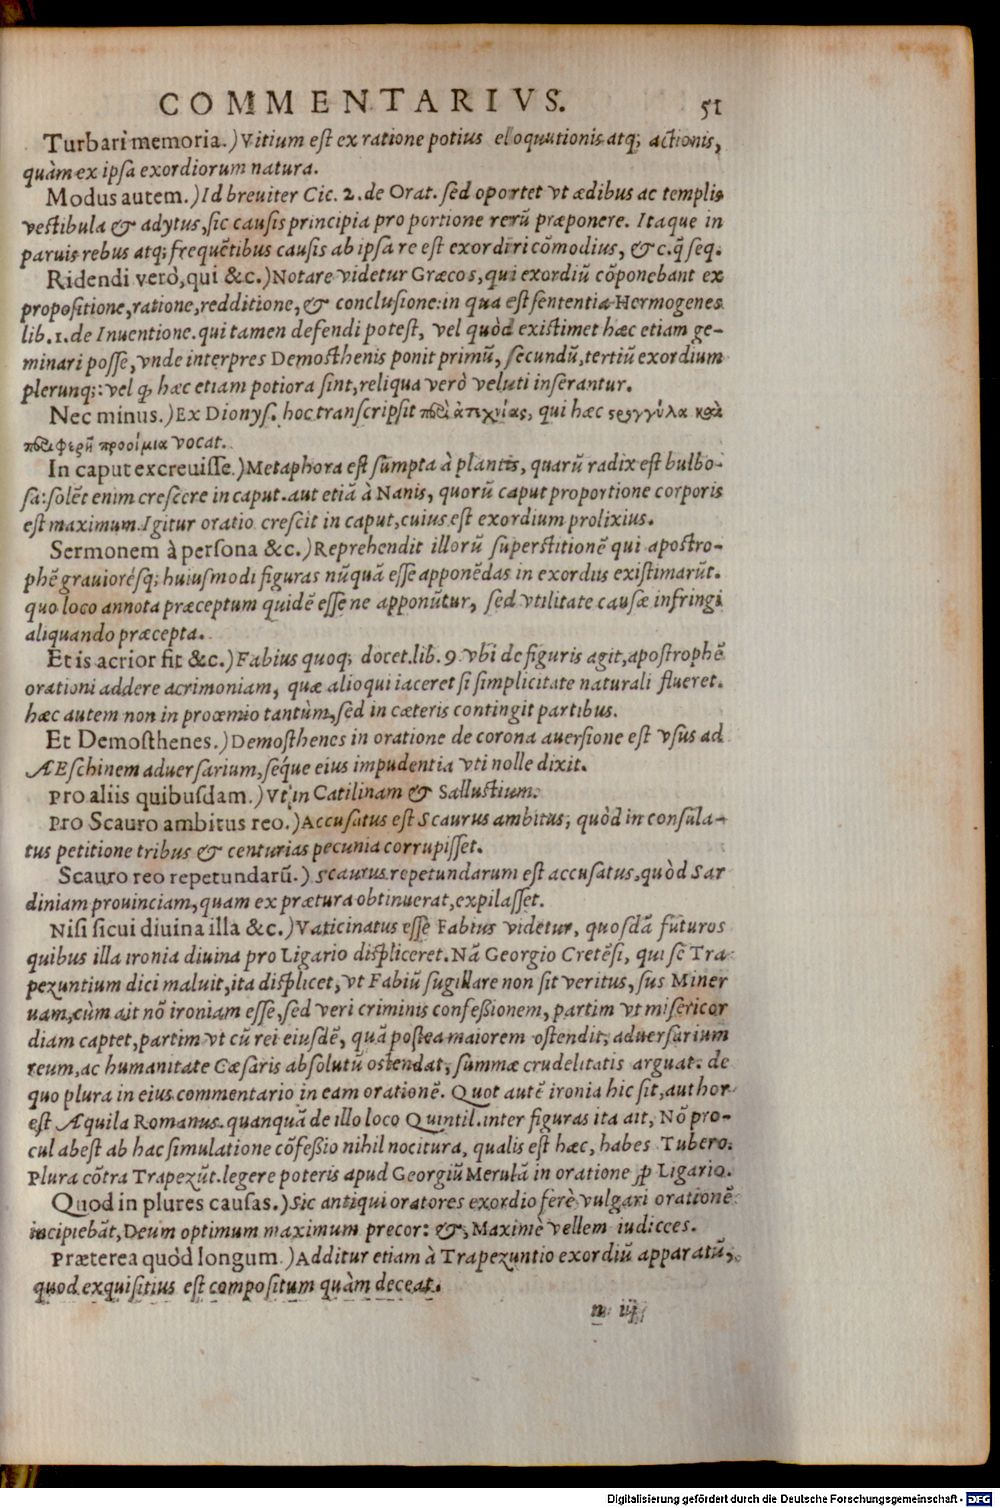 COMMENTARIVS. 51
Turbari memoria.) Vitium est ex ratione potius eloquutionis atq; actionis,
quàm ex ipsa exordiorum natura.
Modus autem.) Id breuiter Cic. 2. de Orat. sed oportet vt ædibus ac templis
vestibula & adytus, sic causis principia pro portione rerū præponere. Itaque in
paruis rebus atq; frequētibus causis ab ipsa re est exordiri cōmodius, & c. q̄ seq.
Ridendi verò, qui &c.) Notare videtur Græcos, qui exordiū cōponebant ex
propositione, ratione, redditione, & conclusione: in qua est sententia Hermogenes
lib. 1. de Inuentione. qui tamen defendi potest, vel quòd existimet hæc etiam ge-
minari posse, vnde interpres Demosthenis ponit primū, secundū, tertiū exordium
plerunq;: vel ꝙ hæc etiam potiora sint, reliqua verò veluti inserantur.
Nec minus.) Ex Dionys. hoc transcripsit qui hæc
προοίμια vocat.
In caput excreuisse.) Metaphora est sumpta à plantis, quarū radix est bulbo-
sa: solēt enim crescere in caput. aut etiā à Nanis, quorū caput proportione corporis
est maximum. Igitur oratio crescit in caput, cuius est exordium prolixius.
Sermonem à persona &c.) Reprehendit illorū superstitionē qui apostro-
phē grauiorésq; huiusmodi figuras nūquā esse apponēdas in exordiis existimarūt.
quo loco annota præceptum quidē esse ne apponūtur, sed vtilitate causæ infringi
aliquando præcepta.
Et is acrior fit &c.) Fabius quoq; docet. lib. 9. vbi de figuris agit, apostrophē
orationi addere acrimoniam, quæ alioqui iaceret si simplicitate naturali flueret.
hæc autem non in proœmio tantùm, sed in cæteris contingit partibus.
Et Demosthenes.) Demosthenes in oratione de corona auersione est vsus ad
AEschinem aduersarium, séque eius impudentia vti nolle dixit.
Pro aliis quibusdam.) Vt in Catilinam & Sallustium.
Pro Scauro ambitus reo.) Accusatus est Scaurus ambitus, quòd in consula-
tus petitione tribus & centurias pecunia corrupisset.
Scauro reo repetundarū.) Scaurus repetundarum est accusatus, quòd Sar
diniam prouinciam, quam ex prætura obtinuerat, expilasset.
Nisi sicui diuina illa &c.) Vaticinatus esse Fabius videtur, quosdā futuros
quibus illa ironia diuina pro Ligario displiceret. Nā Georgio Cretēsi, qui se Tra-
pezuntium dici maluit, ita displicet, vt Fabiū sugillare non sit veritus, sus Miner
uam, cùm ait nō ironiam esse, sed veri criminis confeßionem, partim vt misericor
diam captet, partim vt cū rei eiusdē, quā postea maiorem ostendit, aduersarium
reum, ac humanitate Cæsaris absolutū ostendat, summæ crudelitatis arguat. de
quo plura in eius commentario in eam orationē. Quot autē ironia hic sit, author
est Æquila Romanus. quanquā de illo loco Quintil. inter figuras ita ait, Nō pro-
cul abest ab hac simulatione cōfeßio nihil nocitura, qualis est hæc, habes Tubero.
Plura cōtra Trapezūt. legere poteris apud Georgiū Merulā in oratione ꝓ Ligario.
Quod in plures causas.) Sic antiqui oratores exordio ferè vulgari orationē
incipiebāt, Deum optimum maximum precor: &, Maximè vellem iudicces.
Præterea quòd longum.) Additur etiam à Trapezuntio exordiū apparatū,
quod exquisitius est compositum quàm deceat.
n iij
Digitalisierung gefördert durch die Deutsche Forschungsgemeinschaft - DFG